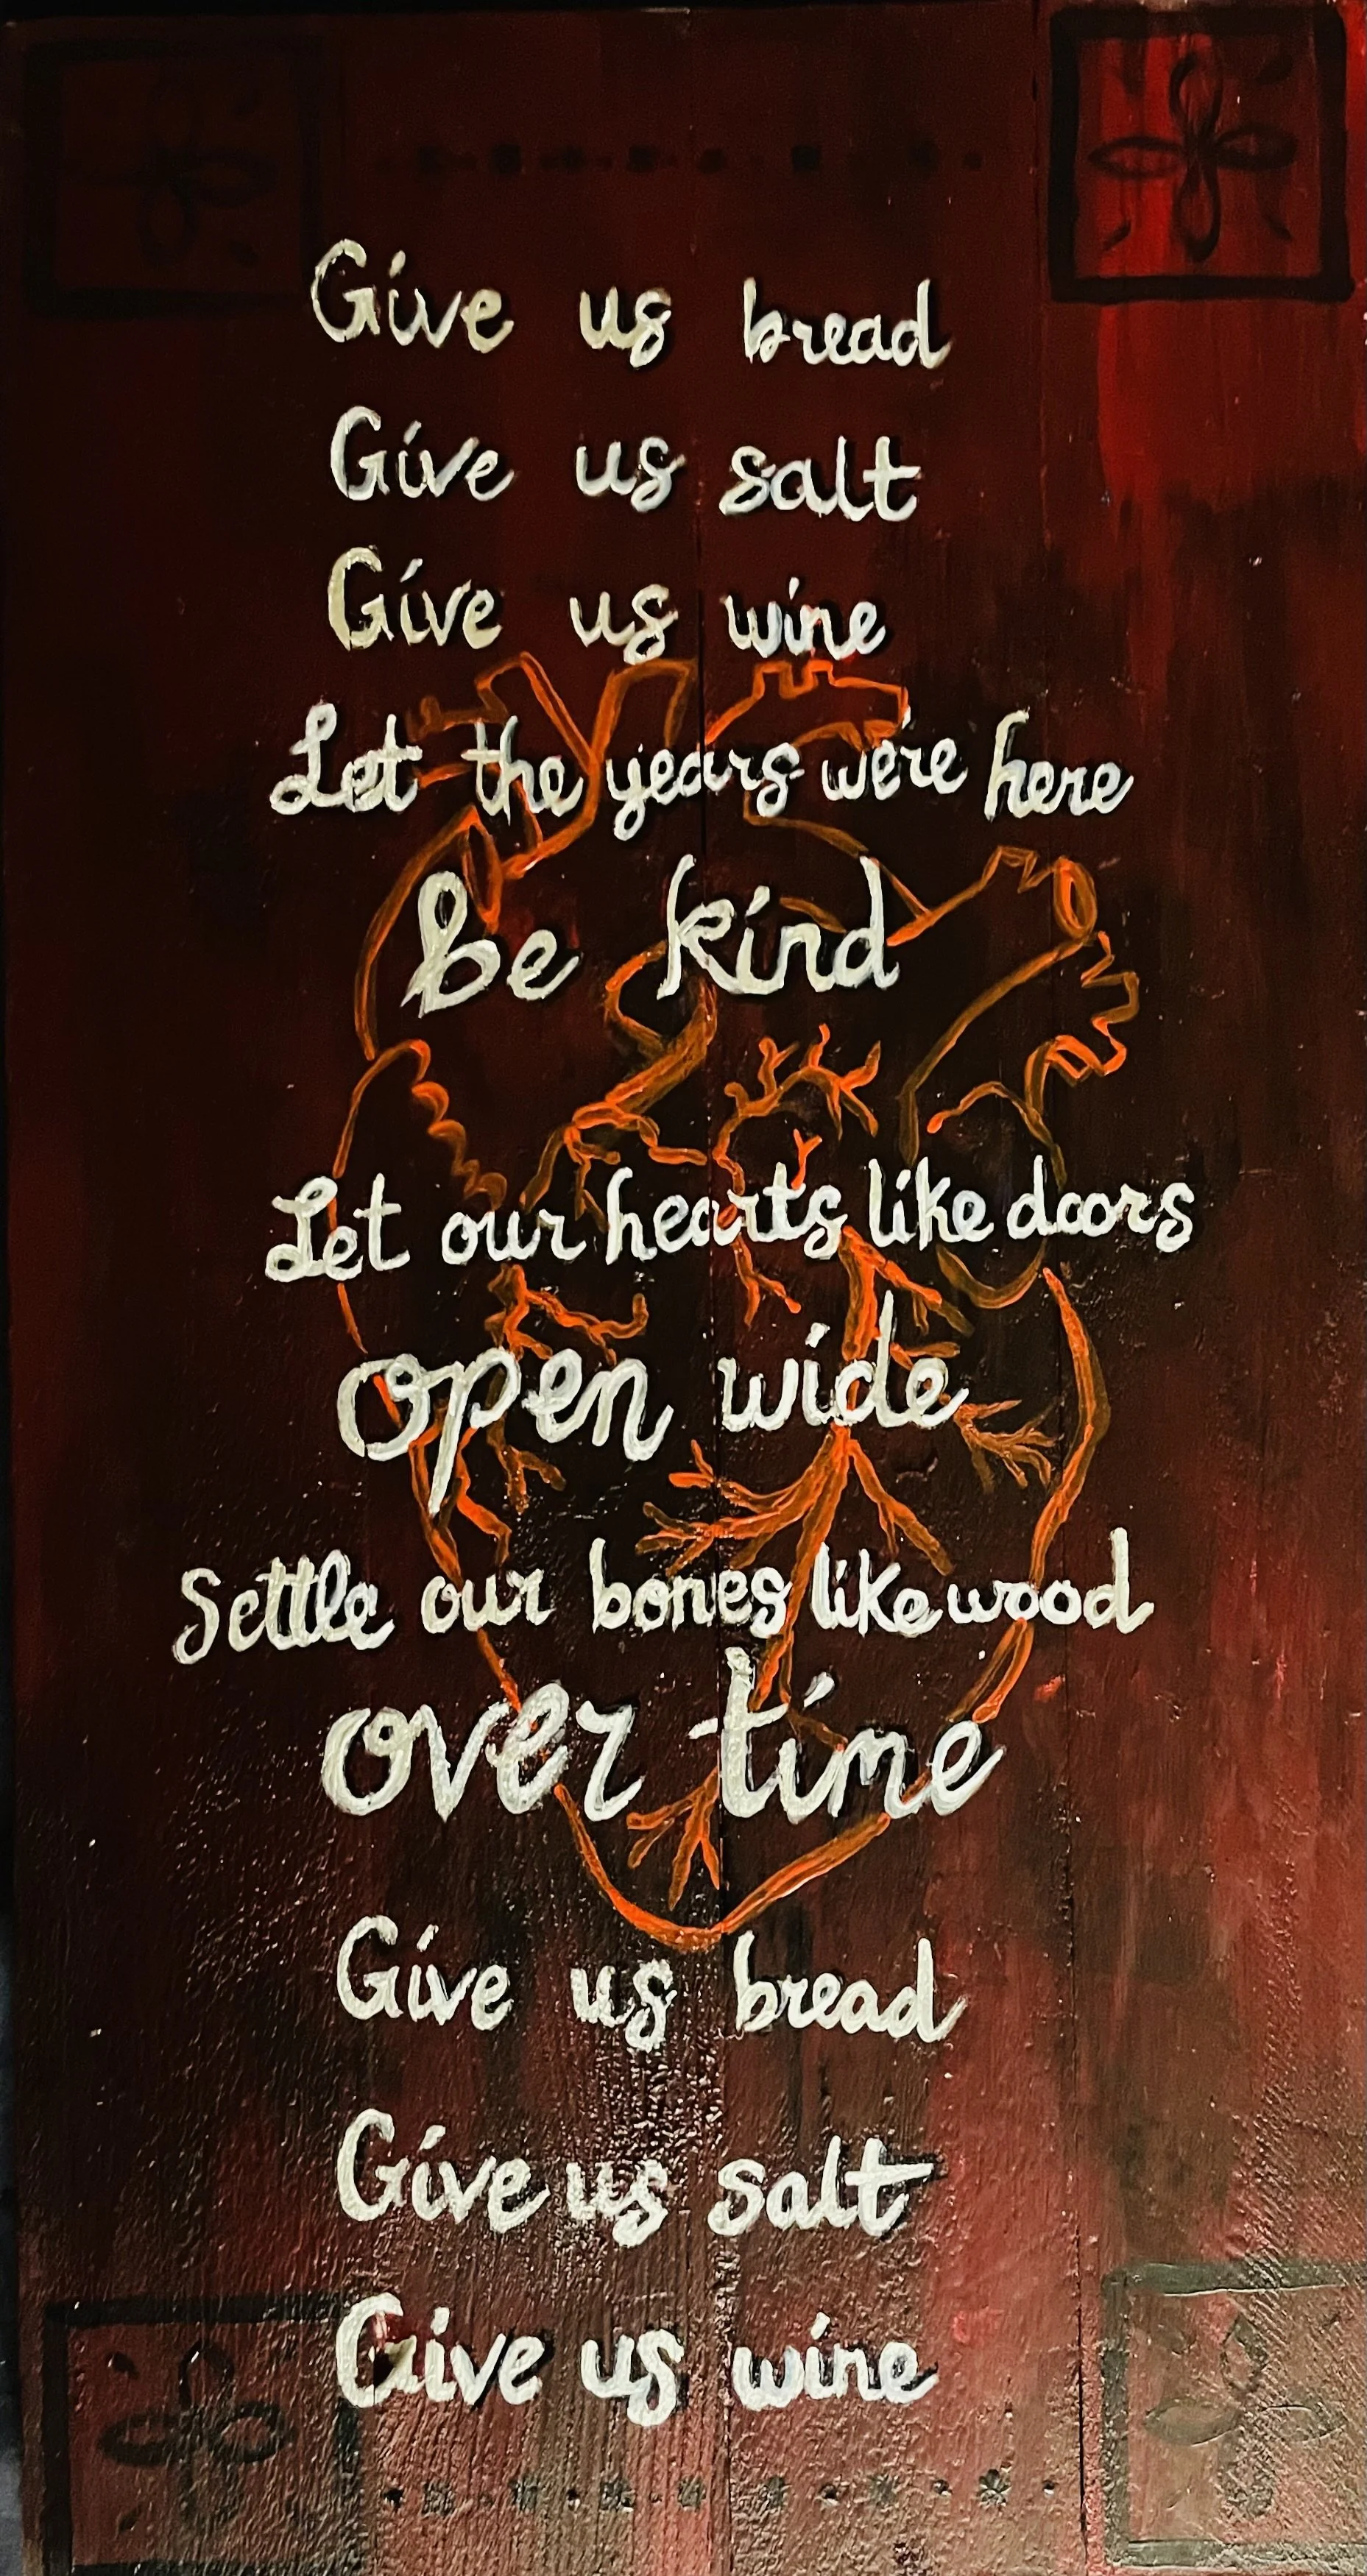 Give us bread
Give us salt
Give us wine
Let the years we're here
be kind
Let our hearts like doors
open wide
Settle our bones like wood
over time
Give us bread
Give us salt
Give us wine